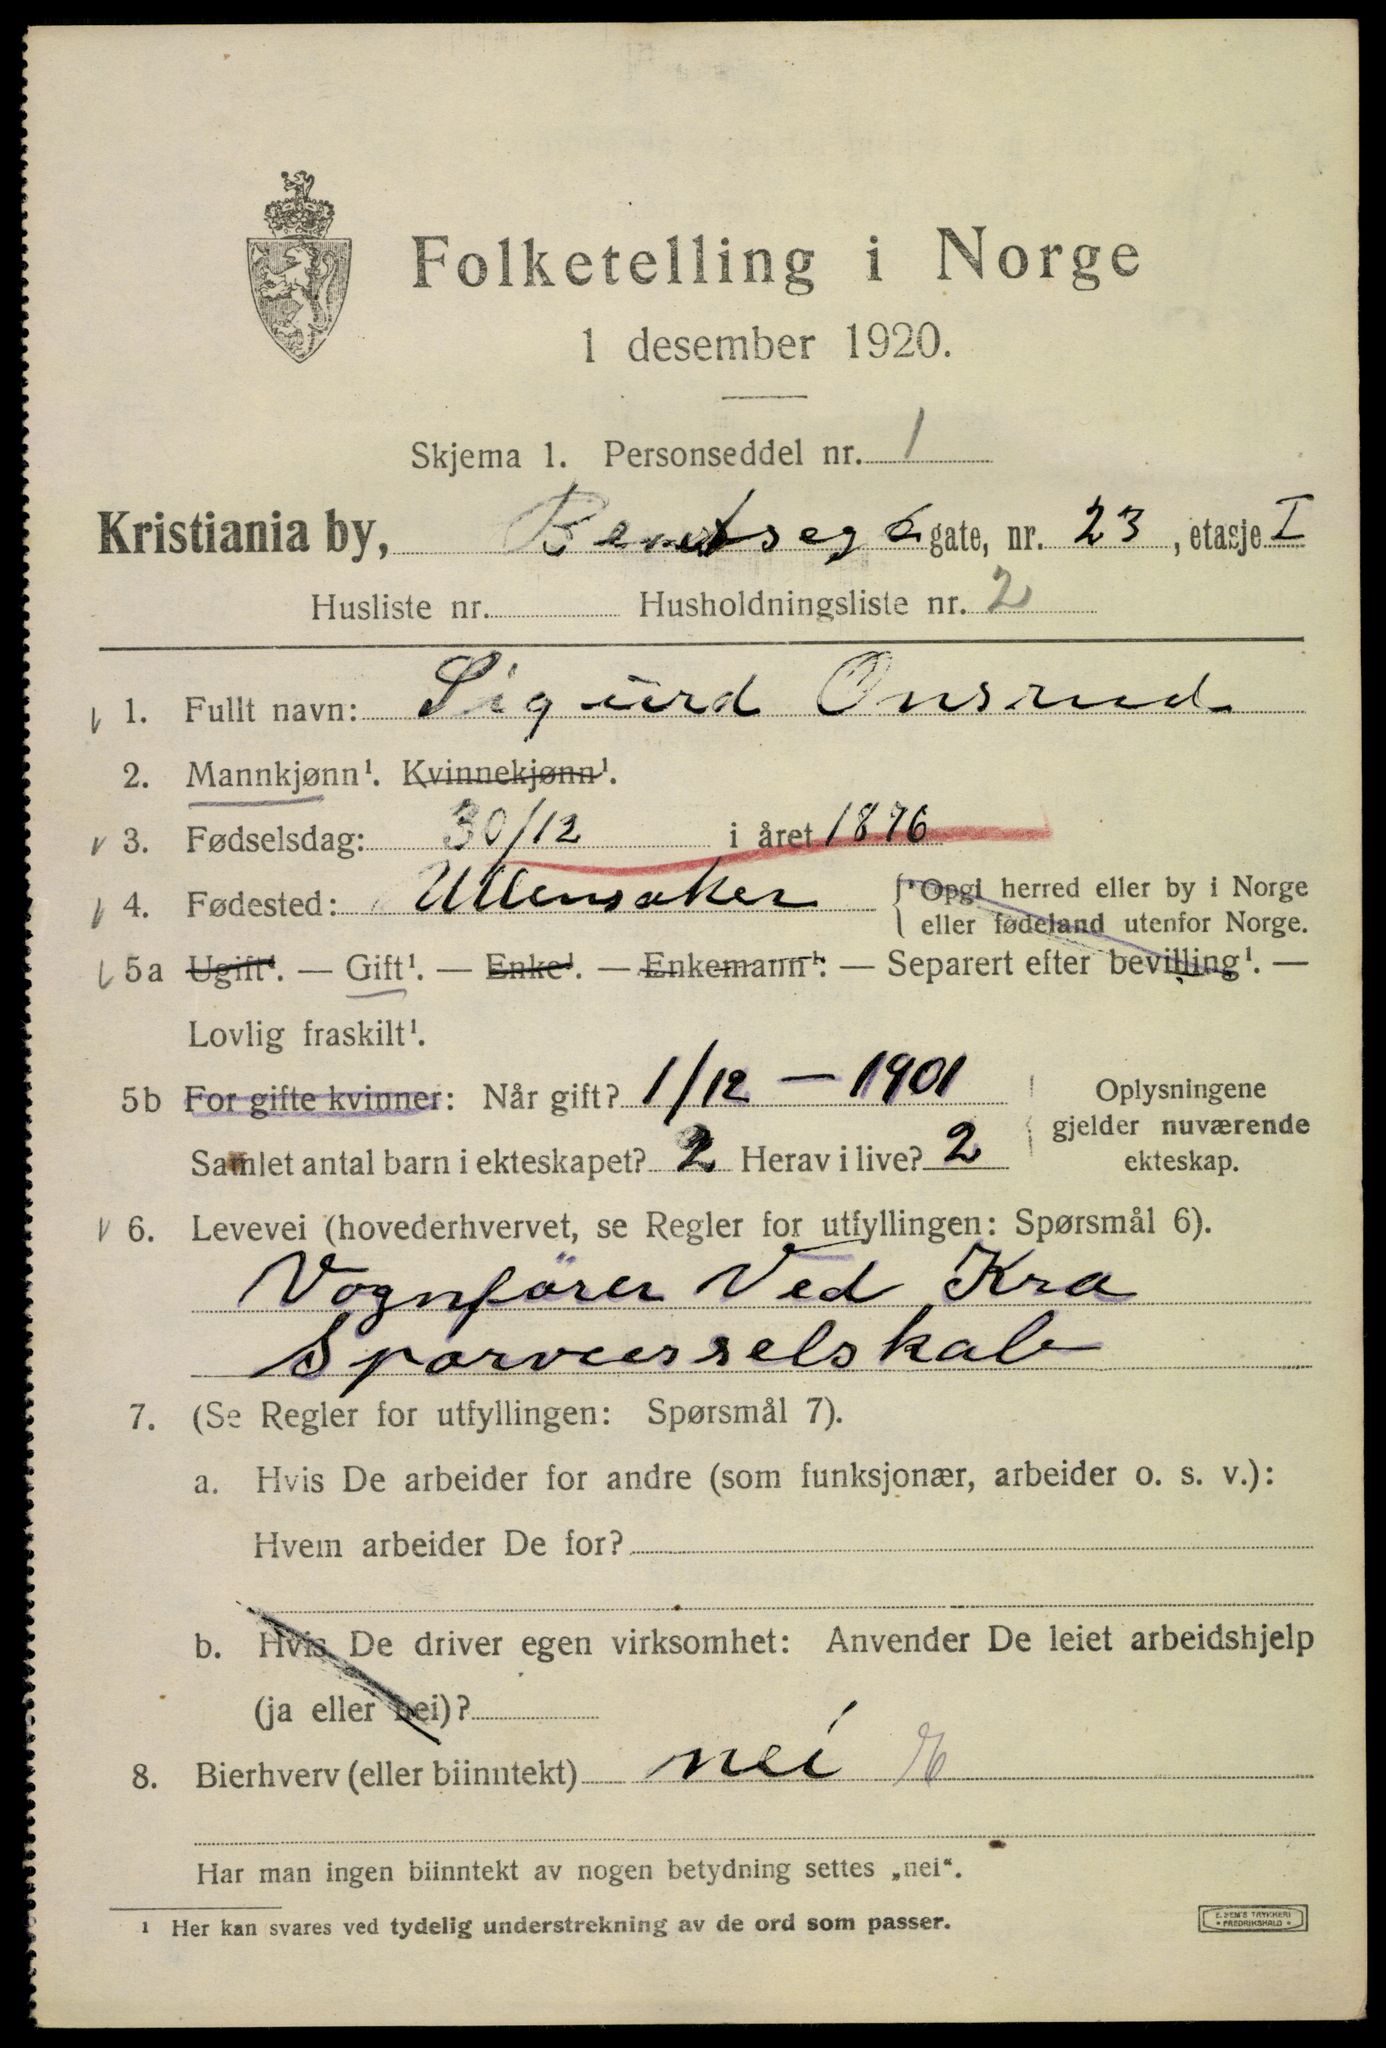 Folketelling i Norge
1 desember 1920.
Skjema 1. Personseddel nr. 1
Kristiania by, Bentsegt gate, nr. 23, etasje I
Husliste nr. Husholdningsliste nr. 2
1. Fullt navn: Sigurd Onsrud
2. Mannkjønn¹. Kvinnekjønn¹.
3. Fødselsdag: 30/12 i året 1876
4. Fødested: Ullensaker { Opgi herred eller by i Norge
eller fødeland utenfor Norge.
5a Ugift¹. — Gift¹. — Enke¹. — Enkemann¹. — Separert efter bevilling¹. —
Lovlig fraskilt¹.
5b For gifte kvinner: Når gift? 1/12 — 1901
Samlet antal barn i ekteskapet? 2 Herav i live? 2
Oplysningene
gjelder nuværende
ekteskap.
6. Levevei (hovederhvervet, se Regler for utfyllingen: Spørsmål 6).
Vognförer Ved Kra
Sporveisselskab
7. (Se Regler for utfyllingen: Spørsmål 7).
a. Hvis De arbeider for andre (som funksjonær, arbeider o. s. v.):
Hvem arbeider De for?
b. Hvis De driver egen virksomhet: Anvender De leiet arbeidshjelp
(ja eller nei)?
8. Bierhverv (eller biinntekt) nei
Har man ingen biinntekt av nogen betydning settes „nei“.
¹ Her kan svares ved tydelig understrekning av de ord som passer.
E. SEM'S TRYKKERI
• FREDRIKSHALD •